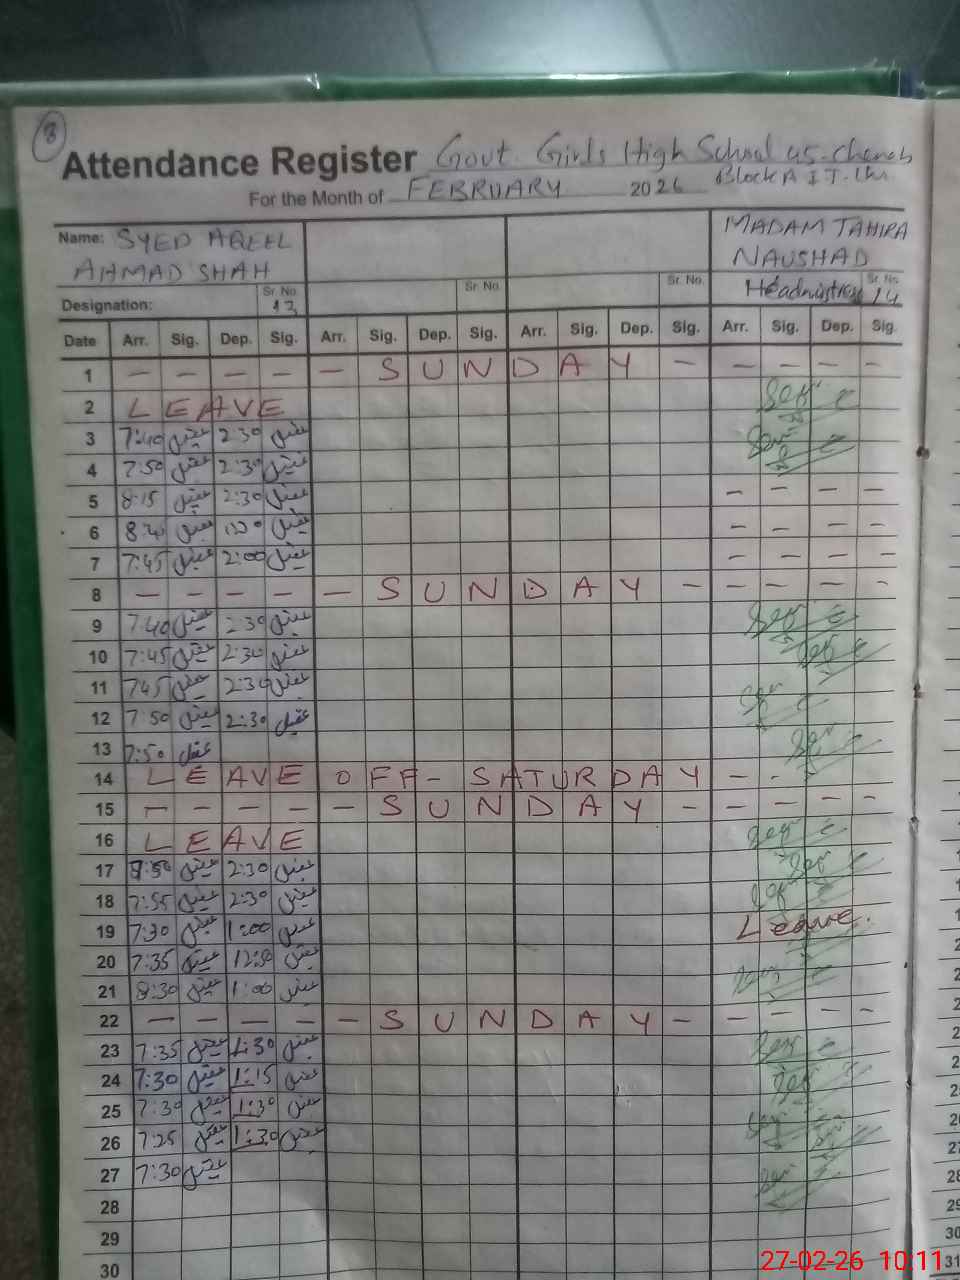 3
Attendance Register Govt. Girls High School 45-Chenab
For the Month of FEBRUARY 2026 Block A I T. Lhr.
Name: SYED AQEEL
AHMAD SHAH
MADAM TAHIRA
NAUSHAD
Designation: Sr. No. 13 Sr. No. Sr. No. Headmistress Sr. No. 14
Date Arr. Sig. Dep. Sig. Arr. Sig. Dep. Sig. Arr. Sig. Dep. Sig. Arr. Sig. Dep. Sig.
1 - - - - - S U N D A Y - - - - -
2 L E A V E
3 7:40 عقیل 2:30 عقیل
4 7:50 عقیل 2:30 عقیل
5 8:15 عقیل 2:30 عقیل - - - -
6 عقیل عقیل - - - -
7 7:45 عقیل 2:00 عقیل - - - -
8 - - - - - S U N D A Y - - - - -
9 7:40 عقیل 2:30 عقیل
10 7:45 عقیل 2:30 عقیل
11 745 عقیل 2:30 عقیل
12 7:50 عقیل 2:30 عقیل
13 7:50 عقیل
14 L E A V E O F F - S A T U R D A Y - -
15 - - - - - S U N D A Y - - - - -
16 L E A V E
17 عقیل 2:30 عقیل
18 7:55 عقیل 2:30 عقیل
19 7:30 عقیل 1:00 عقیل Leave.
20 7:35 عقیل عقیل
21 8:30 عقیل 1:00 عقیل
22 - - - - - S U N D A Y - - - - -
23 7:35 عقیل 1:30 عقیل
24 7:30 عقیل 1:15 عقیل
25 7:30 عقیل 1:30 عقیل
26 7:25 عقیل 1:30 عقیل
27 7:30 عقیل
28
29
30
27-02-26 10:11